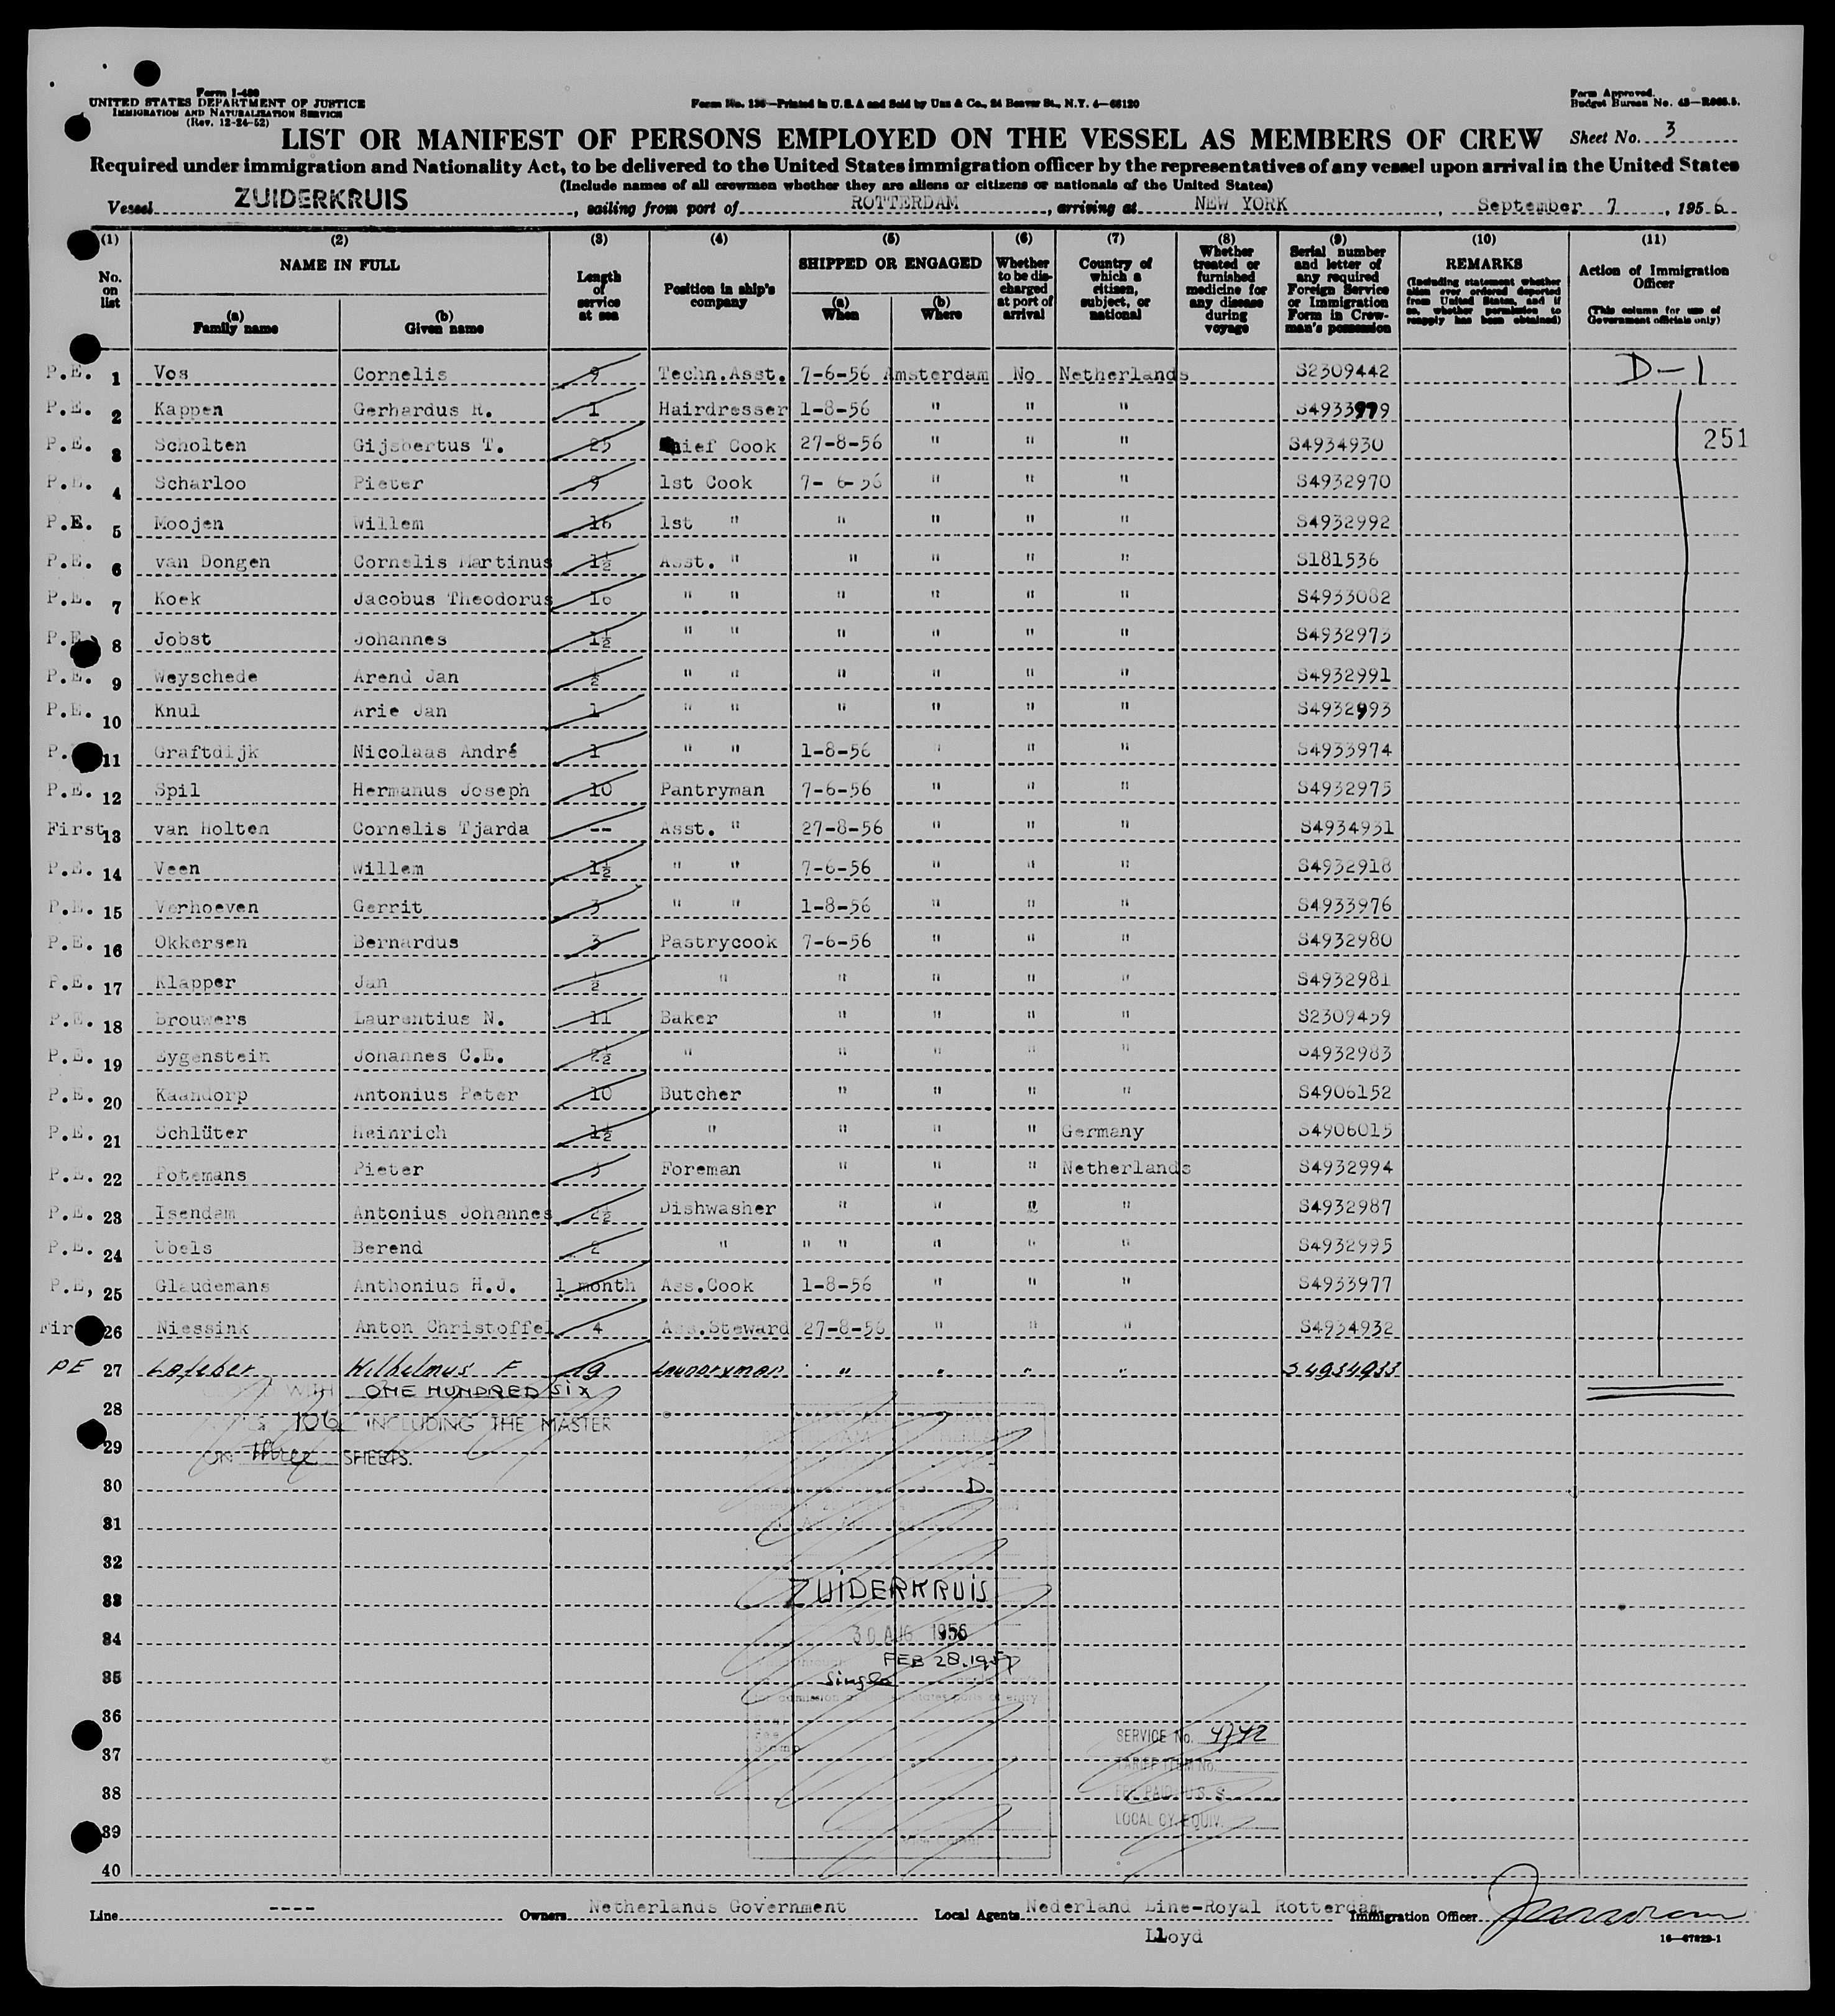 Form I-480
UNITED STATES DEPARTMENT OF JUSTICE
IMMIGRATION AND NATURALIZATION SERVICE
(Rev. 12-24-52)
Form No. 136—Printed in U.S.A and Sold by Unz & Co., 24 Beaver St., N.Y. 4—66120
Form Approved.
Budget Bureau No. 43—R065.5.
LIST OR MANIFEST OF PERSONS EMPLOYED ON THE VESSEL AS MEMBERS OF CREW Sheet No. 3
Required under immigration and Nationality Act, to be delivered to the United States immigration officer by the representatives of any vessel upon arrival in the United States
(Include names of all crewmen whether they are aliens or citizens or nationals of the United States)
Vessel ZUIDERKRUIS, sailing from port of ROTTERDAM, arriving at NEW YORK, September 7, 1956
(1) No. on list
(2) NAME IN FULL (a) Family name (b) Given name
(3) Length of service at sea
(4) Position in ship's company
(5) SHIPPED OR ENGAGED (a) When (b) Where
(6) Whether to be discharged at port of arrival
(7) Country of which a citizen, subject, or national
(8) Whether treated or furnished medicine for any disease during voyage
(9) Serial number and letter of any required Foreign Service or Immigration Form in Crewman's possession
(10) REMARKS (Including statement whether alien ever ordered deported from United States, and if so, whether permission to reapply has been obtained)
(11) Action of Immigration Officer (This column for use of Government officials only)
P.E. 1 Vos Cornelis 9 Techn.Asst. 7-6-56 Amsterdam No Netherlands S2309442 D-1
P.E. 2 Kappen Gerhardus R. 1 Hairdresser 1-8-56 " " " S4933979
P.E. 3 Scholten Gijsbertus T. 25 Chief Cook 27-8-56 " " " S4934930 251
P.E. 4 Scharloo Pieter 9 1st Cook 7-6-56 " " " S4932970
P.E. 5 Moojen Willem 16 1st " " " " " S4932992
P.E. 6 van Dongen Cornelis Martinus 1½ Asst. " " " " " S181536
P.E. 7 Koek Jacobus Theodorus 16 " " " " " " S4933082
P.E. 8 Jobst Johannes 1½ " " " " " " S4932973
P.E. 9 Weyschede Arend Jan ½ " " " " " " S4932991
P.E. 10 Knul Arie Jan 1 " " " " " " S4932993
P. 11 Graftdijk Nicolaas André 1 " " 1-8-56 " " " S4933974
P.E. 12 Spil Hermanus Joseph 10 Pantryman 7-6-56 " " " S4932975
First 13 van Holten Cornelis Tjarda -- Asst. " 27-8-56 " " " S4934931
P.E. 14 Veen Willem 1½ " " 7-6-56 " " " S4932918
P.E. 15 Verhoeven Gerrit 3 " " 1-8-56 " " " S4933976
P.E. 16 Okkersen Bernardus 3 Pastrycook 7-6-56 " " " S4932980
P.E. 17 Klapper Jan ½ " " " " " S4932981
P.E. 18 Brouwers Laurentius N. 11 Baker " " " " S2309459
P.E. 19 Eygenstein Johannes C.E. 2½ " " " " " S4932983
P.E. 20 Kaandorp Antonius Peter 10 Butcher " " " " S4906152
P.E. 21 Schlüter Heinrich 1½ " " " " Germany S4906015
P.E. 22 Potemans Pieter 3 Foreman " " " Netherlands S4932994
P.E. 23 Isendam Antonius Johannes 2½ Dishwasher " " " " S4932987
P.E. 24 Ubels Berend 2 " " " " " " S4932995
P.E, 25 Glaudemans Anthonius H.J. 1 month Ass.Cook 1-8-56 " " " S4933977
Fir 26 Niessink Anton Christoffel 4 Ass.Steward 27-8-56 " " " S4934932
PE 27 Lafeber Wilhelmus F 19 Laundryman " " " " S4934933
WITH ONE HUNDRED SIX
28
106 INCLUDING THE MASTER
29
ON three SHEETS.
30 D
31
32
33 ZUIDERKRUIS
34 30 AUG 1956
FEB 28.1957
35 Single
for admission at United States ports of entry
36
SERVICE No. 4742
37
TARIFF ITEM No.
38 FEE PAID U.S. $
LOCAL CY. EQUIV.
39
40
Line ---- Owners Netherlands Government Local Agents Nederland Line-Royal Rotterdam Immigration Officer
Lloyd
16—67829-1